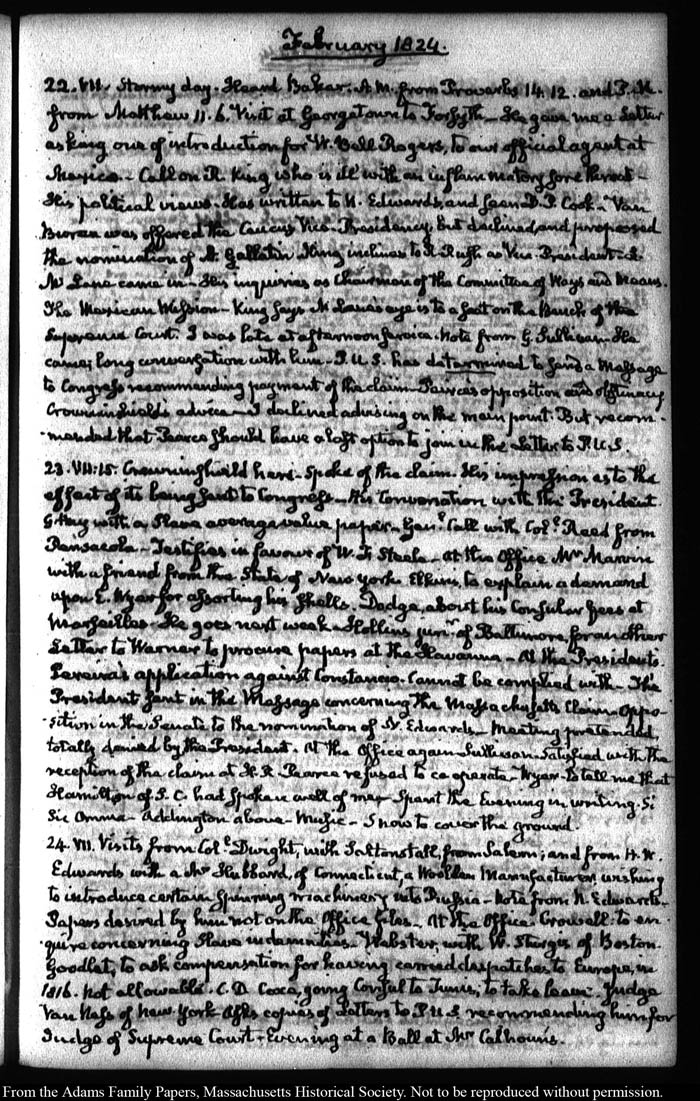 February 1824.
22. VII. Stormy day. Heard Baker. A.M. from Proverbs 14. 12. and P.M.
from Matthew 11. 6. Visit at Georgetown to Forsyth — He gave me a Letter
asking one of introduction for W. Bell Rogers, to our official agent at
Mexico — Call on R. King who is ill with an inflammatory sore throat —
His political views — Has written to N. Edwards, and seen D. P. Cook — Van
Buren was offered the Caucus Vice-Presidency, but declined and proposed
the nomination of A. Gallatin King inclines to R. Rush as Vice-President. L.
McLane came in — His inquiries as Chairman of the Committee of Ways and Means.
The Mexican Mission — King says McLane's eye is to a seat on the Bench of the
Supreme Court. I was late at afternoon service. Note from G. Sullivan. He
came; long conversation with him — P.U.S. has determined to send a Message
to Congress recommending payment of the claim — Pearce's opposition and obstinacy
Crowninshield's advice — I declined advising on the main point. But recom-
-mended that Pearce should have a last option to join in the Letter to P.U.S.
23. VII:15. Crowninshield here. Spoke of the claim. His impression as to the
effect of its being sent to Congress — His Conversation with the President
G Hay with a Slave average value paper — Genl. Call with Colo. Reed from
Pensacola — Testifies in favour of W. F. Steele — At the Office Mr Marvin
with a friend from the State of New York Elkins, to explain a demand
upon E. Wyer for assorting his shells. Dodge, about his Consular Fees at
Marseilles — He goes next week — Hollins junr. of Baltimore, for another
Letter to Warner to procure papers at the Havanna — At the Presidents.
Pereira's application against Constancio. Cannot be complied with — The
President sent in the Message concerning the Massachusetts Claim — Oppo-
-sition in the Senate to the nomination of N. Edwards — Meeting pretended
totally denied by the President. At the Office again — Sullivan — Satisfied with the
reception of the claim at H. R. Pearce refused to co operate — Wyer. To tell me that
Hamilton of S. C. had spoken well of me — Spent the Evening in writing. Si
Sic Omnia — Addington above — Music — Snow to cover the ground.
24. VII. Visits from Colo. Dwight, with Saltonstall, from Salem; and from H. W.
Edwards with a Mr Hubbard, of Connecticut, a Woollen Manufacturer wishing
to introduce certain spinning machinery into Prussia — Note from N. Edwards —
Papers desired by him not on the Office files — At the Office. Crowell: to en-
-quire concerning Slave indemnities — Webster, with W. Sturgis of Boston —
Goodlet, to ask compensation for having carried dispatches to Europe, in
1816. Not allowable. C. D. Coxe, going Consul to Tunis, to take leave. Judge
Van Ness of New York Asks copies of Letters to P.U.S recommending him for
Judge of Supreme Court — Evening at a Ball at Mr Calhoun's.
From the Adams Family Papers, Massachusetts Historical Society. Not to be reproduced without permission.